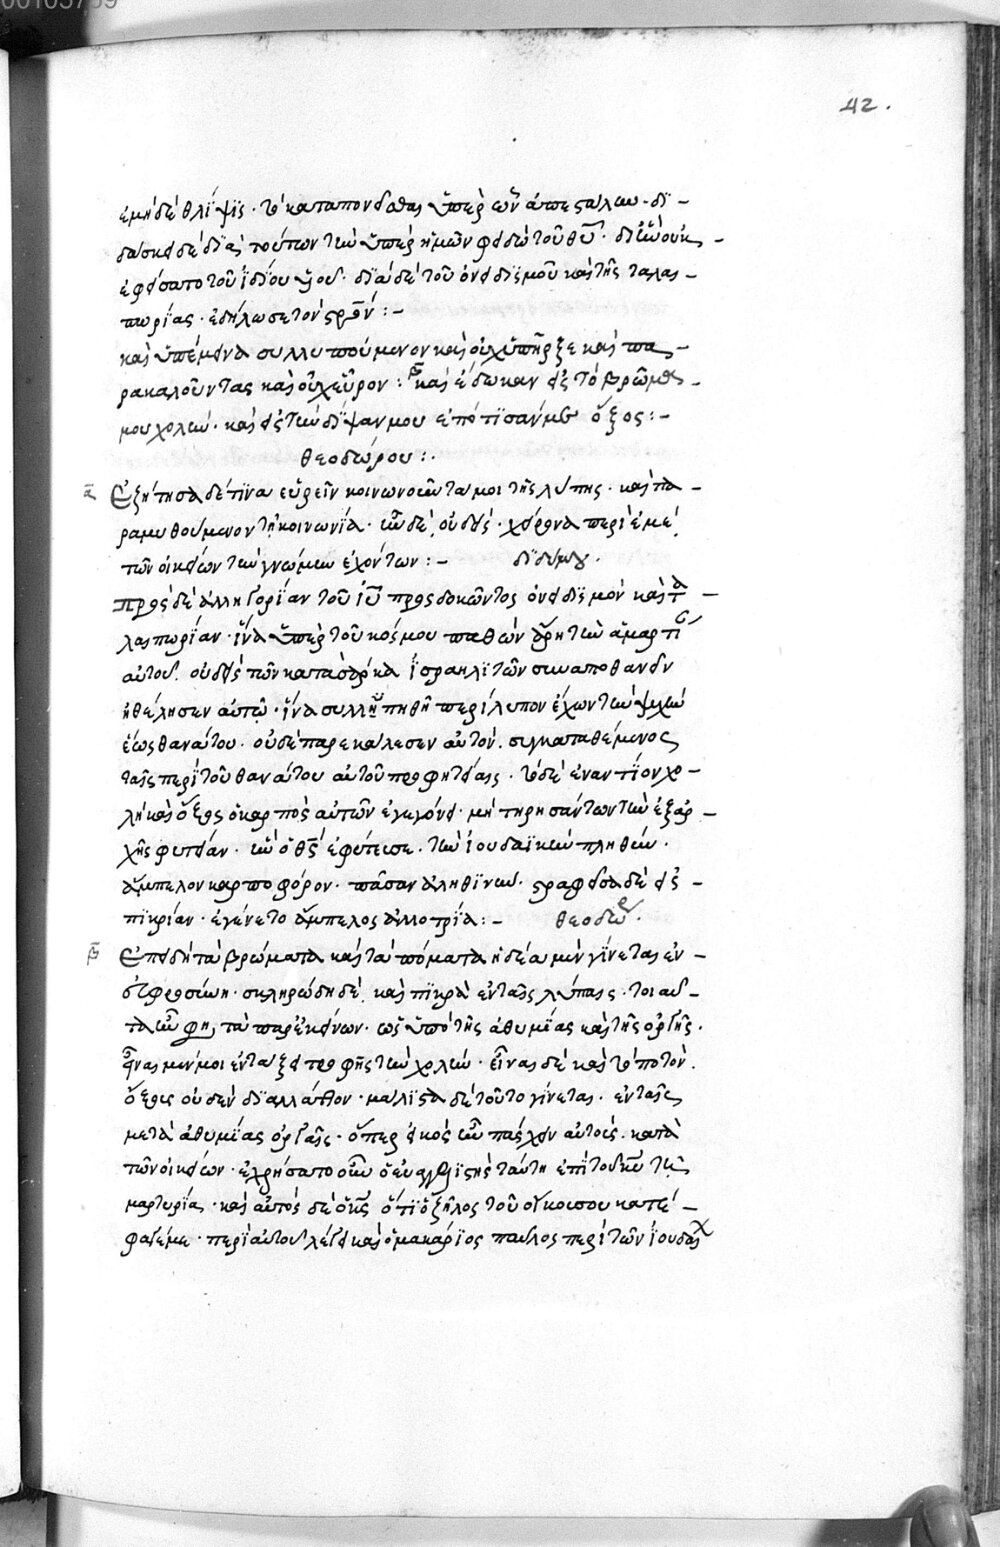 42.
ἐμὴ δὲ θλῖψις · τὸ καταπονεῖσθαι ὑπὲρ ὧν ἀπεστάλην · δι-
δάσκει δὲ διὰ τούτων τὴν ὑπὲρ ἡμῶν φειδὼ τοῦ θῦ · δι' ἣν οὐκ
ἐφείσατο τοῦ ἰδίου υἱοῦ · διὰ δὲ τοῦ ὀνειδισμοῦ καὶ τῆς ταλαι-
πωρίας · ἐδήλωσε τὸν στρον :-
καὶ ὑπέμεινα συλλυπούμενον καὶ οὐχ ὑπῆρξε καὶ πα-
ρακαλοῦντας καὶ οὐχ εὗρον : β καὶ ἔδωκαν εἰς τὸ βρῶμά
μου χολήν · καὶ εἰς τὴν δίψαν μου ἐπότισάν με ὄξος :-
θεοδώρου :·
α Ἐζήτησα δέ τινα εὑρεῖν κοινωνοῦντά μοι τῆς λύπης · καὶ πα-
ραμυθούμενον τῇ κοινωνίᾳ · ἦν δὲ οὐδεὶς · χείρονα περὶ ἐμὲ
τῶν οἰκείων τὴν γνώμην ἐχόντων :- διδύμου ·
πρὸς δὲ ἀλληγορίαν τοῦ ιυ προσδοκῶντος ὀνειδισμὸν καὶ τα-
λαιπωρίαν · ἵνα ὑπὲρ τοῦ κόσμου παθὼν ἄρῃ τὴν ἁμαρτί
αὐτοῦ. οὐδεὶς τῶν κατὰ σάρκα ἰσραηλιτῶν συναποθανεῖν
ἠθέλησεν αὐτῷ · ἵνα συλλυπηθῇ περίλυπον ἔχων τὴν ψυχὴν
ἕως θανάτου. οὐδὲ παρεκάλεσεν αὐτὸν. συγκαταθέμενος
ταῖς περὶ τοῦ θανάτου αὐτοῦ προφητείαις · τὸ δὲ ἐναντίον χο-
λὴ καὶ ὄξος ὁ καρπὸς αὐτῶν ἐγεγόνει · μὴ τηρησάντων τὴν ἐξ ἀρ-
χῆς φυτείαν · ἣν ὁ θς ἐφύτευσε. τὴν ἰουδαϊκὴν πληθὺν ·
ἄμπελον καρποφόρον · πᾶσαν ἀληθινήν · στραφεῖσα δὲ εἰς
πικρίαν · ἐγένετο ἄμπελος ἀλλοτρία :- θεοδώρ ·
β Ἐπειδὴ τὰ βρώματα καὶ τὰ πόματα ἡδέα μὲν γίνεται ἐν
εὐφροσύνῃ · σκληρώδη δὲ καὶ πικρὰ ἐν ταῖς λύπαις · τοιαῦ-
τα ἦν φησι τὰ παρ' ἐκείνων · ὡς ὑπὸ τῆς ἀθυμίας καὶ τῆς ὀργῆς ·
εἶναι μὲν μοι ἐν τάξει τροφῆς τὴν χολήν · εἶναι δὲ καὶ τὸ ποτὸν ·
ὄξους οὐδὲν διαλλάττον · μάλιστα δὲ τοῦτο γίνεται · ἐν ταῖς
μετὰ ἀθυμίας ὀργαῖς · ὅπερ εἰκὸς ἦν πάσχειν αὐτοὺς κατὰ
τῶν οἰκείων · ἐχρήσατο οὖν ὁ εὐαγγελιστὴς ταύτῃ ἐπὶ τοῦ κυ τῇ
μαρτυρίᾳ · καὶ αὐτὸς δὲ ὁ κς ὅτι ὁ ζῆλος τοῦ οἴκου σου κατέ-
φαγέ με · περὶ αὐτοῦ λέγει καὶ ὁ μακάριος παῦλος περὶ τῶν ἰουδαι